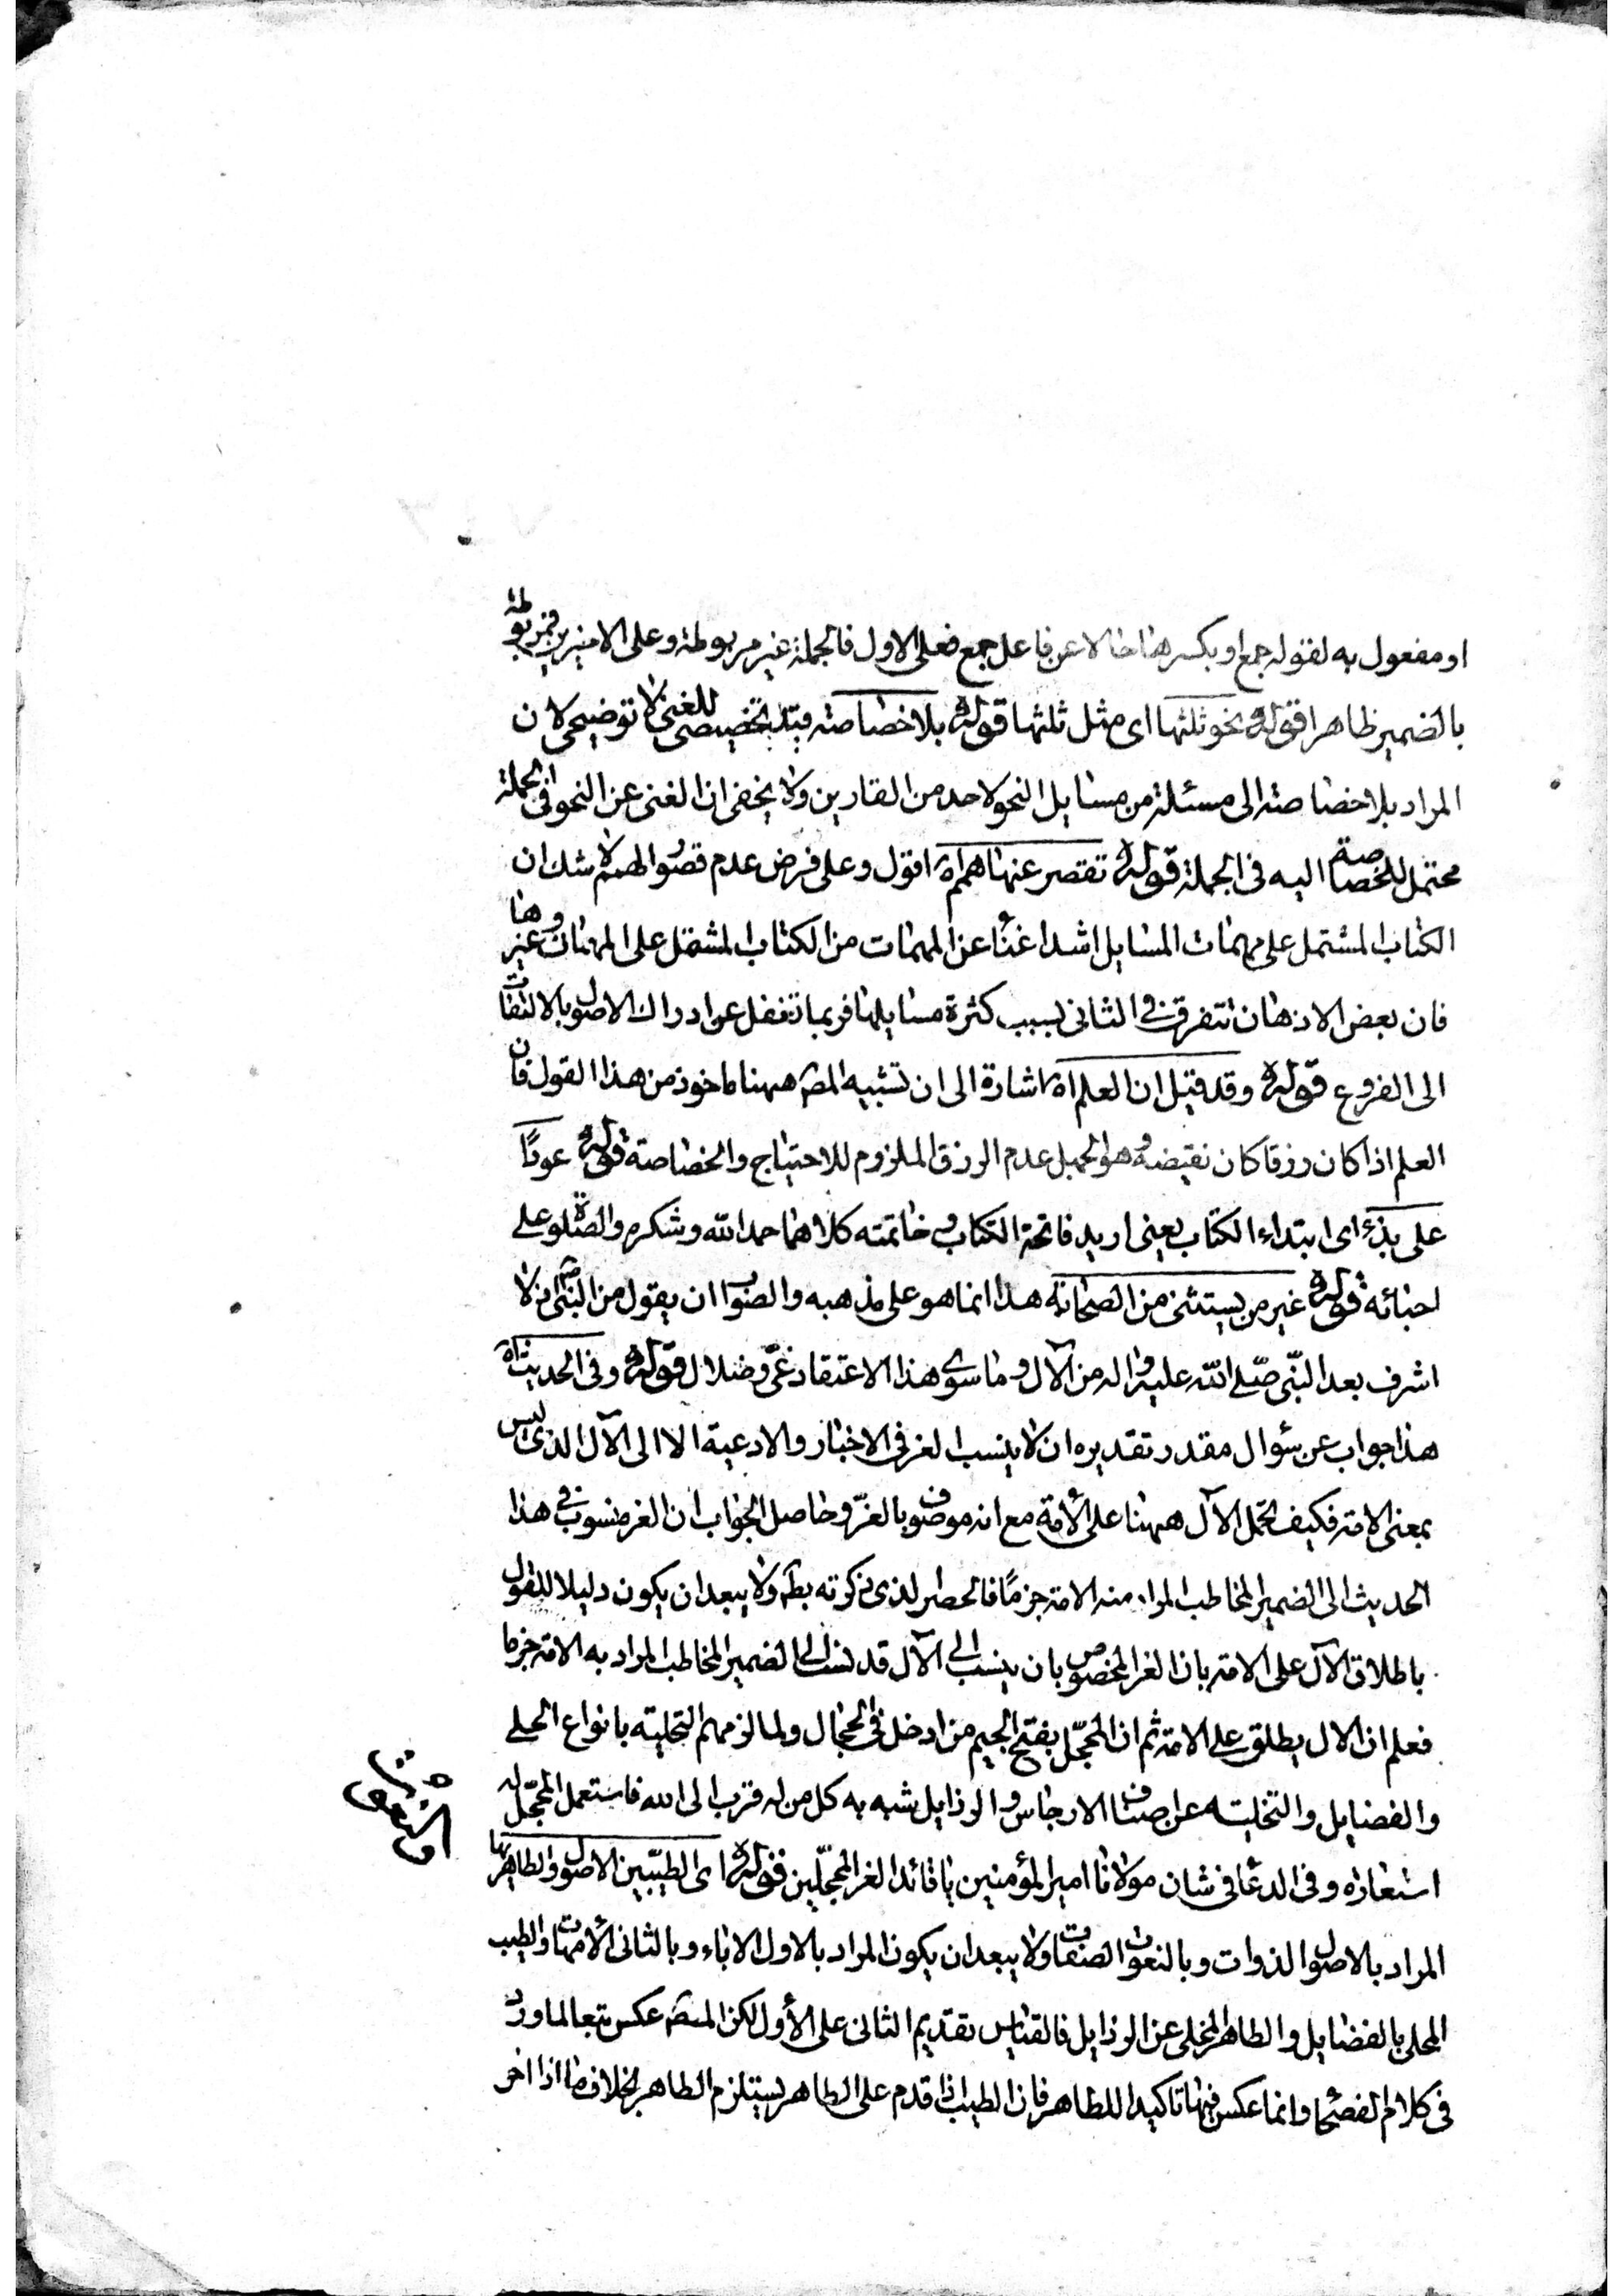 او مفعول به لقوله جمع او بكسرها حالا عن فاعل جمع فعلى الاول فالجملة غير مربوطة وعلى الاخيرين فمربوطة
بالضمير ظاهرا قوله نحو ثلثها اى مثل ثلثها قوله بلا خصاصته قيد تخصيصى للغنى لا توضيحى لان
المراد بلا خصاصته الى مسئلة من مسايل النحو لاحد من القارين ولا يخفى ان الغنى عن النحو فى الجملة
محتمل للخصاصة اليه فى الجملة قوله تقصر عنها همم اه اقول وعلى فرض عدم قصور الهمم لا شك ان
الكتاب المشتمل على مهمات المسايل اشد اغناً عن المهمات من الكتاب المشتمل على المهمات وغيرها
فان بعض الاذهان تتفرق فى الثانى بسبب كثرة مسايلها فربما تغفل عن ادراك الاصول بالالتفات
الى الفروع قوله وقد قيل ان العلم اه اشارة الى ان تشبيه المصه ههنا ماخوذ من هذا القول فان
العلم اذا كان رزقا كان نقيضه وهو الجهل عدم الرزق الملزوم للاحتياج والخصاصة قوله عودًا
على بدء اى ابتداء الكتاب يعنى اريد فاتحة الكتاب وخاتمته كلاهما حمد الله وشكره والصلوة على
احبائه قوله غير من يستثنى من الصحابة هذا انما هو على مذهبه والصواب ان يقول من النبى اذ لا
اشرف بعد النبى صلى الله عليه واله من الآل وما سوى هذا الاعتقاد غى وضلال قوله وفى الحديث اه
هذا جواب عن سؤال مقدر تقديره ان لا ينسب الغر فى الاخبار والادعية الا الى الآل الذى ليس
بمعنى الامة فكيف تحمل الآل ههنا على الأمة مع انه موصوف بالغر وحاصل الجواب ان الغر منسوب فى هذا
الحديث الى الضمير المخاطب المراد منه الامة جزمًا فالحصر الذى ذكرته بطه ولا يبعد ان يكون دليلا للقول
باطلاق الآل على الامة بان الغر المخصوص بان ينسب الى الآل قد نسب الى الضمير المخاطب المراد به الامة جزما
فعلم ان الال يطلق على الامة ثم ان المحجّل بفتح الجيم من ادخل فى الحجال ولما لزمهم التحلية بانواع الحلى
والفضايل والتخلية عن اصناف الارجاس والرذايل شبه به كل من له قرب الى الله فاستعمل المحجّل له
استعاره وفى الدعا فى شان مولانا امير المؤمنين يا قائد الغر المحجّلين قوله اى الطيّبين الاصول والطاهريها
والنعوت
المراد بالاصول الذوات وبالنعوت الصفات ولا يبعد ان يكون المراد بالاول الاباء وبالثانى الأمهات والطيب
المحلى بالفضايل والطاهر المخلى عن الرذايل فالقياس تقديم الثانى على الأول لكن المصه عكس تبعا لما ورد
فى كلام الفصحا وانما عكس فيها تاكيدا للطاهر فان الطيب اذا قدم على الطاهر يستلزم الطاهر بخلاف ما اذا اخر